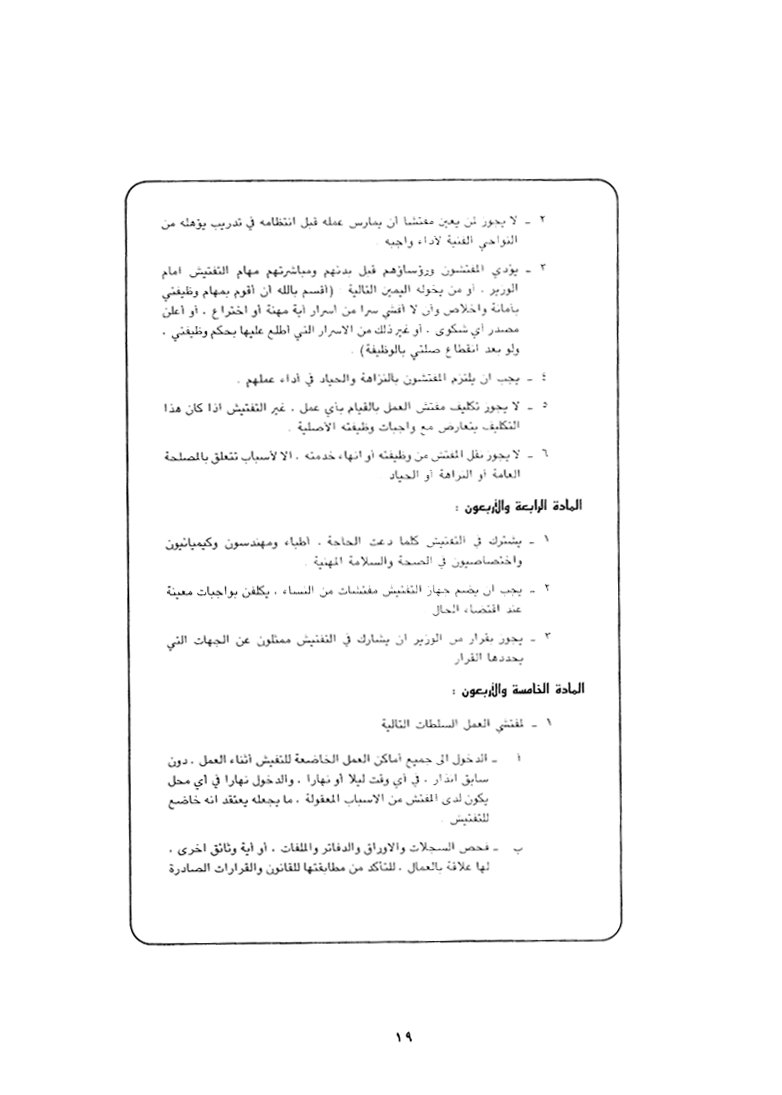 ٢ ـ لا يجوز لمن يعين مفتشا ان يمارس عمله قبل انتظامه في تدريب يؤهله من
النواحي الفنية لأداء واجبه .
٣ ـ يؤدي المفتشون ورؤساؤهم قبل بدئهم ومباشرتهم مهام التفتيش امام
الوزير ، أو من يخوله اليمين التالية : (أقسم بالله أن أقوم بمهام وظيفتي
بأمانة واخلاص وأن لا أفشي سرا من أسرار أية مهنة أو اختراع ، أو أعلن
مصدر أي شكوى ، أو غير ذلك من الاسرار التي اطلع عليها بحكم وظيفتي ،
ولو بعد انقطاع صلتي بالوظيفة) .
٤ ـ يجب ان يلتزم المفتشون بالنزاهة والحياد في أداء عملهم .
٥ ـ لا يجوز تكليف مفتش العمل بالقيام بأي عمل ، غير التفتيش اذا كان هذا
التكليف يتعارض مع واجبات وظيفته الأصلية .
٦ ـ لا يجوز نقل المفتش من وظيفته أو انهاء خدمته ، الا لأسباب تتعلق بالمصلحة
العامة أو النزاهة أو الحياد
المادة الرابعة والأربعون :
١ ـ يشترك في التفتيش كلما دعت الحاجة ، اطباء ومهندسون وكيميائيون
واختصاصيون في الصحة والسلامة المهنية .
٢ ـ يجب ان يضم جهاز التفتيش مفتشات من النساء ، يكلفن بواجبات معينة
عند اقتضاء الحال
٣ ـ يجوز بقرار من الوزير ان يشارك في التفتيش ممثلون عن الجهات التي
يحددها القرار
المادة الخامسة والأربعون :
١ ـ لمفتشي العمل السلطات التالية
أ ـ الدخول الى جميع أماكن العمل الخاضعة للتفيش أثناء العمل ، دون
سابق انذار ، في أي وقت ليلا أو نهارا ، والدخول نهارا في أي محل
يكون لدى المفتش من الاسباب المعقولة ، ما يجعله يعتقد انه خاضع
للتفتيش .
ب ـ فحص السجلات والاوراق والدفاتر والملفات ، أو أية وثائق اخرى ،
لها علاقة بالعمال ، للتأكد من مطابقتها للقانون والقرارات الصادرة
١٩